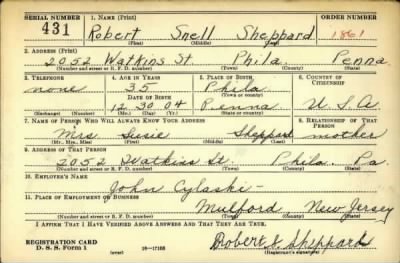 SERIAL NUMBER 1. NAME (Print) ORDER NUMBER
431 Robert Snell Sheppard 1861
(First) (Middle) (Last)
2. ADDRESS (Print)
2052 Watkins St. Phila. Penna
(Number and street or R. F. D. number) (Town) (County) (State)
3. TELEPHONE 4. AGE IN YEARS 5. PLACE OF BIRTH 6. COUNTRY OF CITIZENSHIP
none 35 Phila
DATE OF BIRTH (Town or county)
12 30 04 Penna U.S.A
(Exchange) (Number) (Mo.) (Day) (Yr.) (State or country)
7. NAME OF PERSON WHO WILL ALWAYS KNOW YOUR ADDRESS 8. RELATIONSHIP OF THAT PERSON
Mrs Susie Sheppard mother
(Mr., Mrs., Miss) (First) (Middle) (Last)
9. ADDRESS OF THAT PERSON
2052 Watkins St. Phila. Pa.
(Number and street or R. F. D. number) (Town) (County) (State)
10. EMPLOYER'S NAME
John
11. PLACE OF EMPLOYMENT OR BUSINESS
Mulford New Jersey
(Number and street or R. F. D. number) (Town) (County) (State)
I AFFIRM THAT I HAVE VERIFIED ABOVE ANSWERS AND THAT THEY ARE TRUE.
REGISTRATION CARD
D. S. S. Form 1 (over) 16-17105 Robert S. Sheppard
(Registrant's signature)